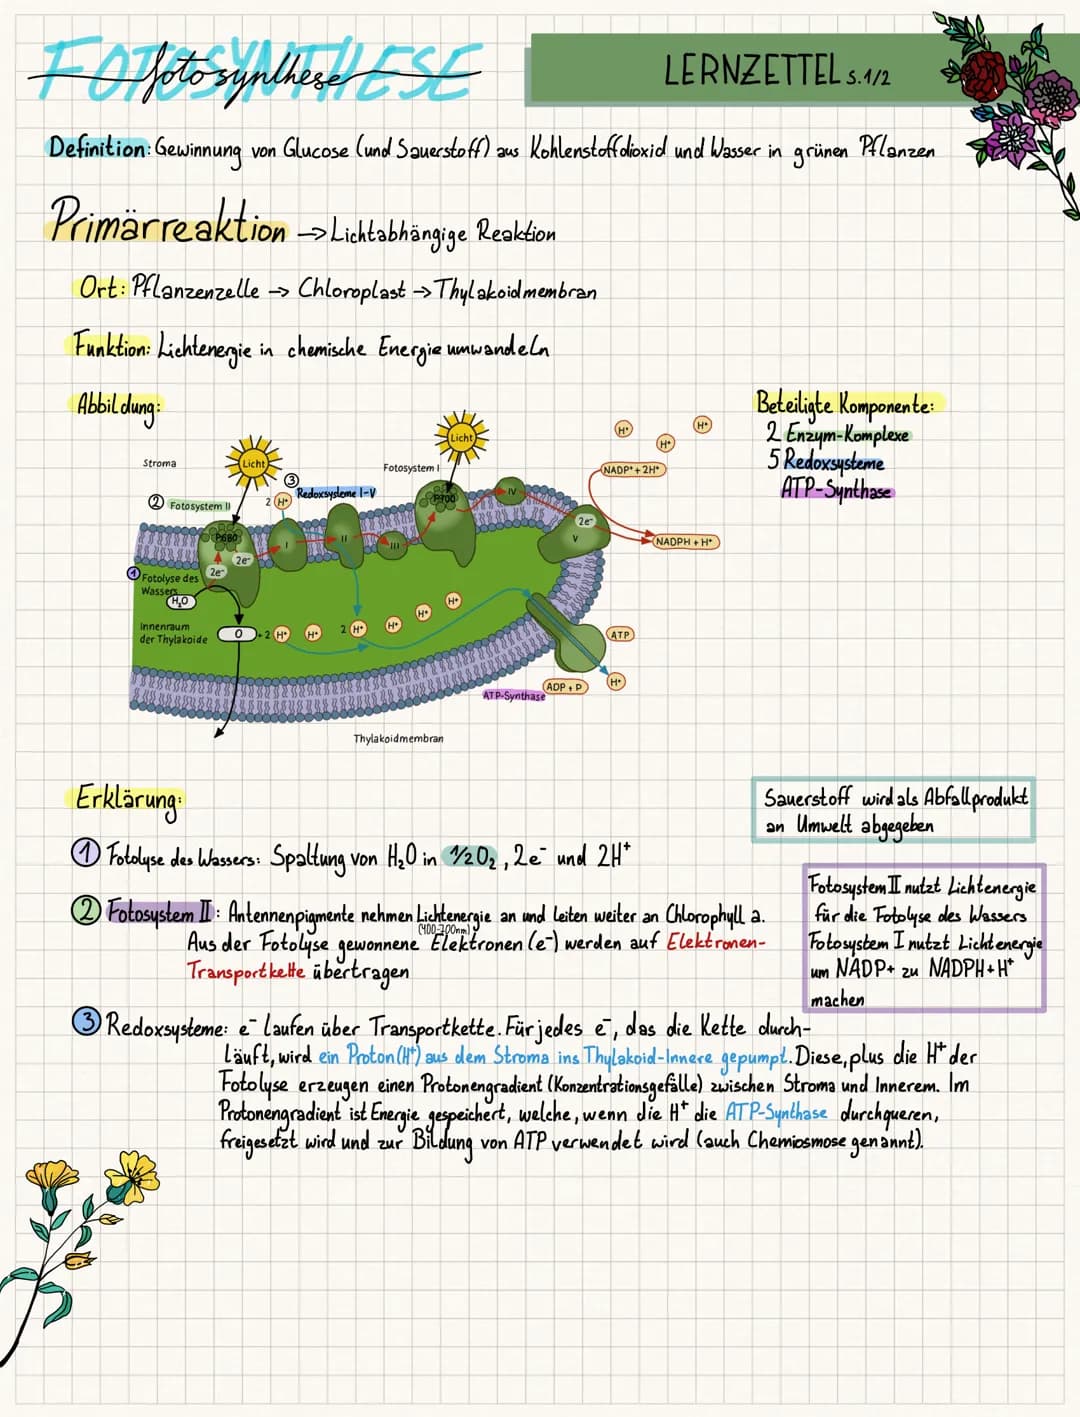 FOTOSYNTHESE
fotosynthese
LERNZETTEL S.1/2
Definition: Gewinnung von Glucose (und Sauerstoff) aus Kohlenstoffdioxid und Wasser in grünen Pflanzen
Primärreaktion → Lichtabhängige Reaktion
Ort: Pflanzenzelle → Chloroplast → Thylakoidmembran
Funktion: Lichtenergie in chemische Energie umwandeln
Abbildung:
Beteiligte Komponente:
2 Enzym-Komplexe
5 Redoxsysteme
ATP-Synthase
Stroma
Licht
Licht
Fotosystem I
H⁺
H⁺
H⁺
NADP⁺ + 2H⁺
② Fotosystem II
③
2 H⁺
Redoxsysteme I-V
P680
I
II
III
P700
IV
2e⁻
V
NADPH + H⁺
2e⁻
2e⁻
① Fotolyse des
Wassers
H₂O
Innenraum
der Thylakoide
O + 2 H⁺
H⁺
2 H⁺
H⁺
H⁺
H⁺
ATP
H⁺
ADP + P
ATP-Synthase
Thylakoidmembran
Erklärung:
Sauerstoff wird als Abfallprodukt
an Umwelt abgegeben
① Fotolyse des Wassers: Spaltung von H₂O in ½O₂, 2e⁻ und 2H⁺
② Fotosystem II: Antennenpigmente nehmen Lichtenergie an und leiten weiter an Chlorophyll a.
(400-700nm)
Aus der Fotolyse gewonnene Elektronen (e⁻) werden auf Elektronen-
Transportkette übertragen
Fotosystem II nutzt Lichtenergie
für die Fotolyse des Wassers
Fotosystem I nutzt Lichtenergie
um NADP+ zu NADPH+H⁺
machen
③ Redoxsysteme: e⁻ laufen über Transportkette. Für jedes e⁻, das die Kette durch-
läuft, wird ein Proton (H⁺) aus dem Stroma ins Thylakoid-Innere gepumpt. Diese, plus die H⁺ der
Fotolyse erzeugen einen Protonengradient (Konzentrationsgefälle) zwischen Stroma und Innerem. Im
Protonengradient ist Energie gespeichert, welche, wenn die H⁺ die ATP-Synthase durchqueren,
freigesetzt wird und zur Bildung von ATP verwendet wird (auch Chemiosmose genannt).